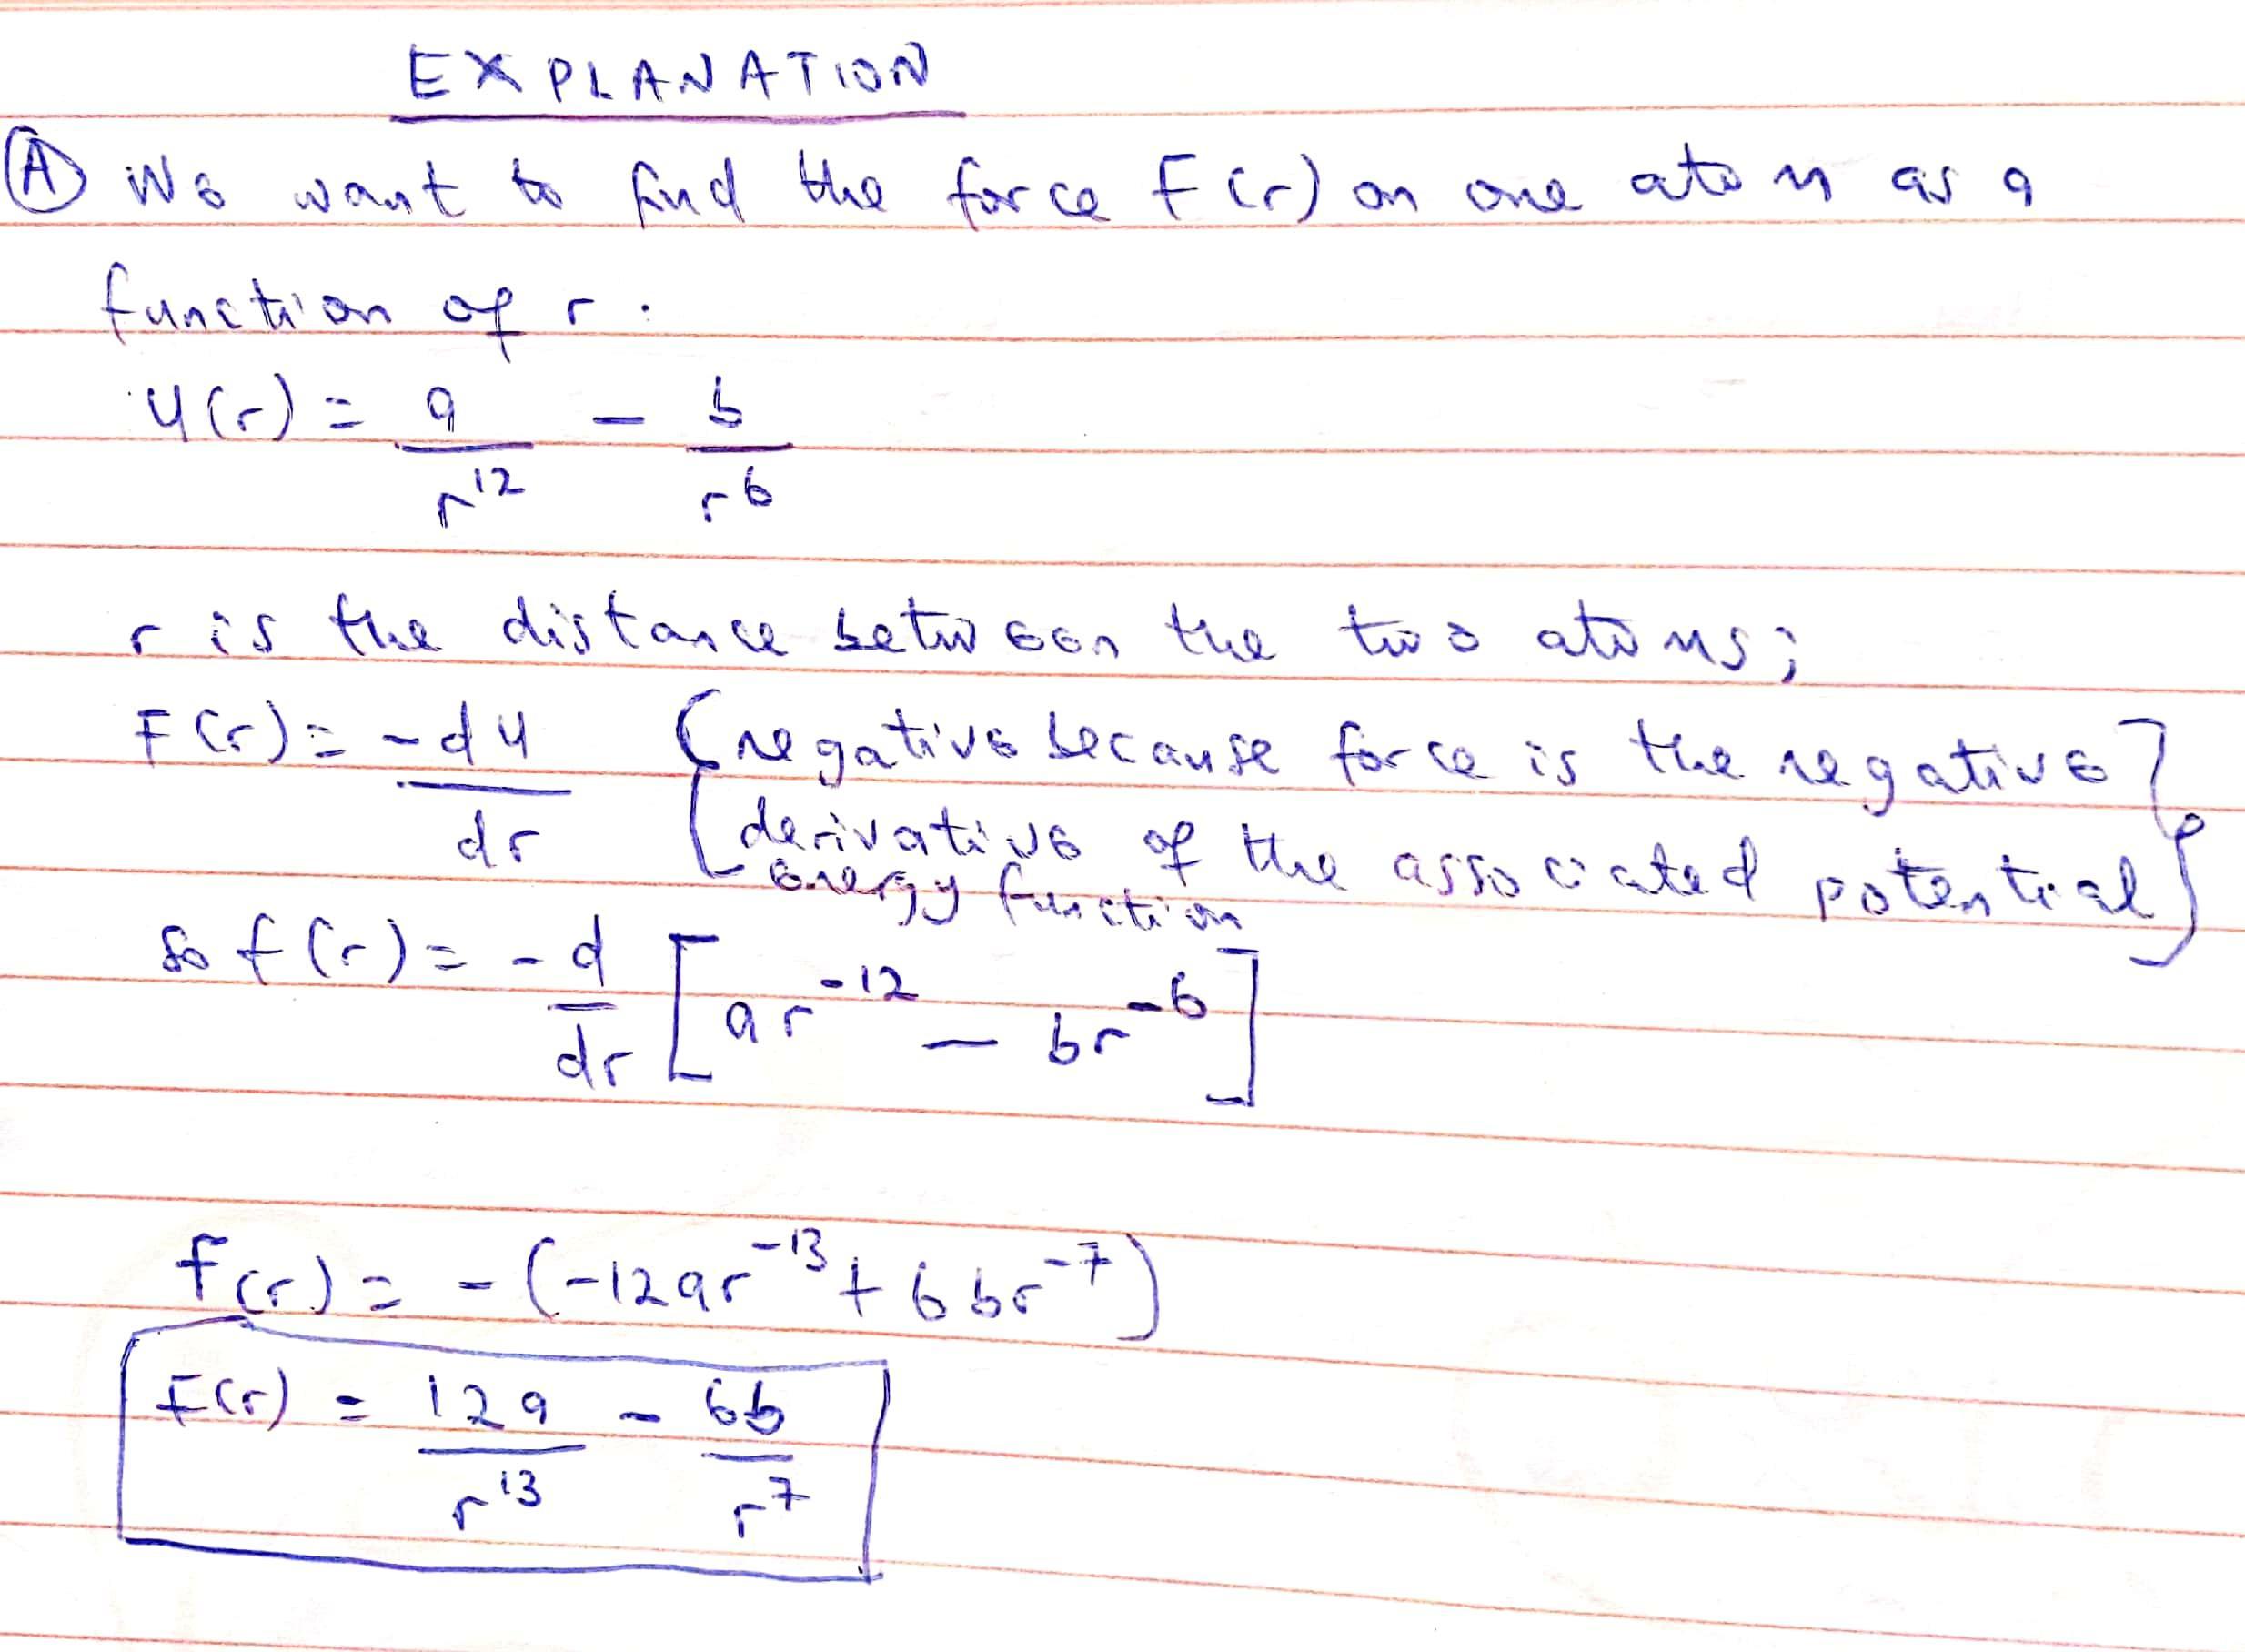 EXPLANATION
(A) We want to find the force F(r) on one atom as a
function of r.
U(r) = a/r^12 - b/r^6
r is the distance between the two atoms;
F(r) = -dU/dr (negative because force is the negative
derivative of the associated potential
energy function
So f(r) = -d/dr [ar^-12 - br^-6]
f(r) = -(-12ar^-13 + 6br^-7)
F(r) = 12a/r^13 - 6b/r^7